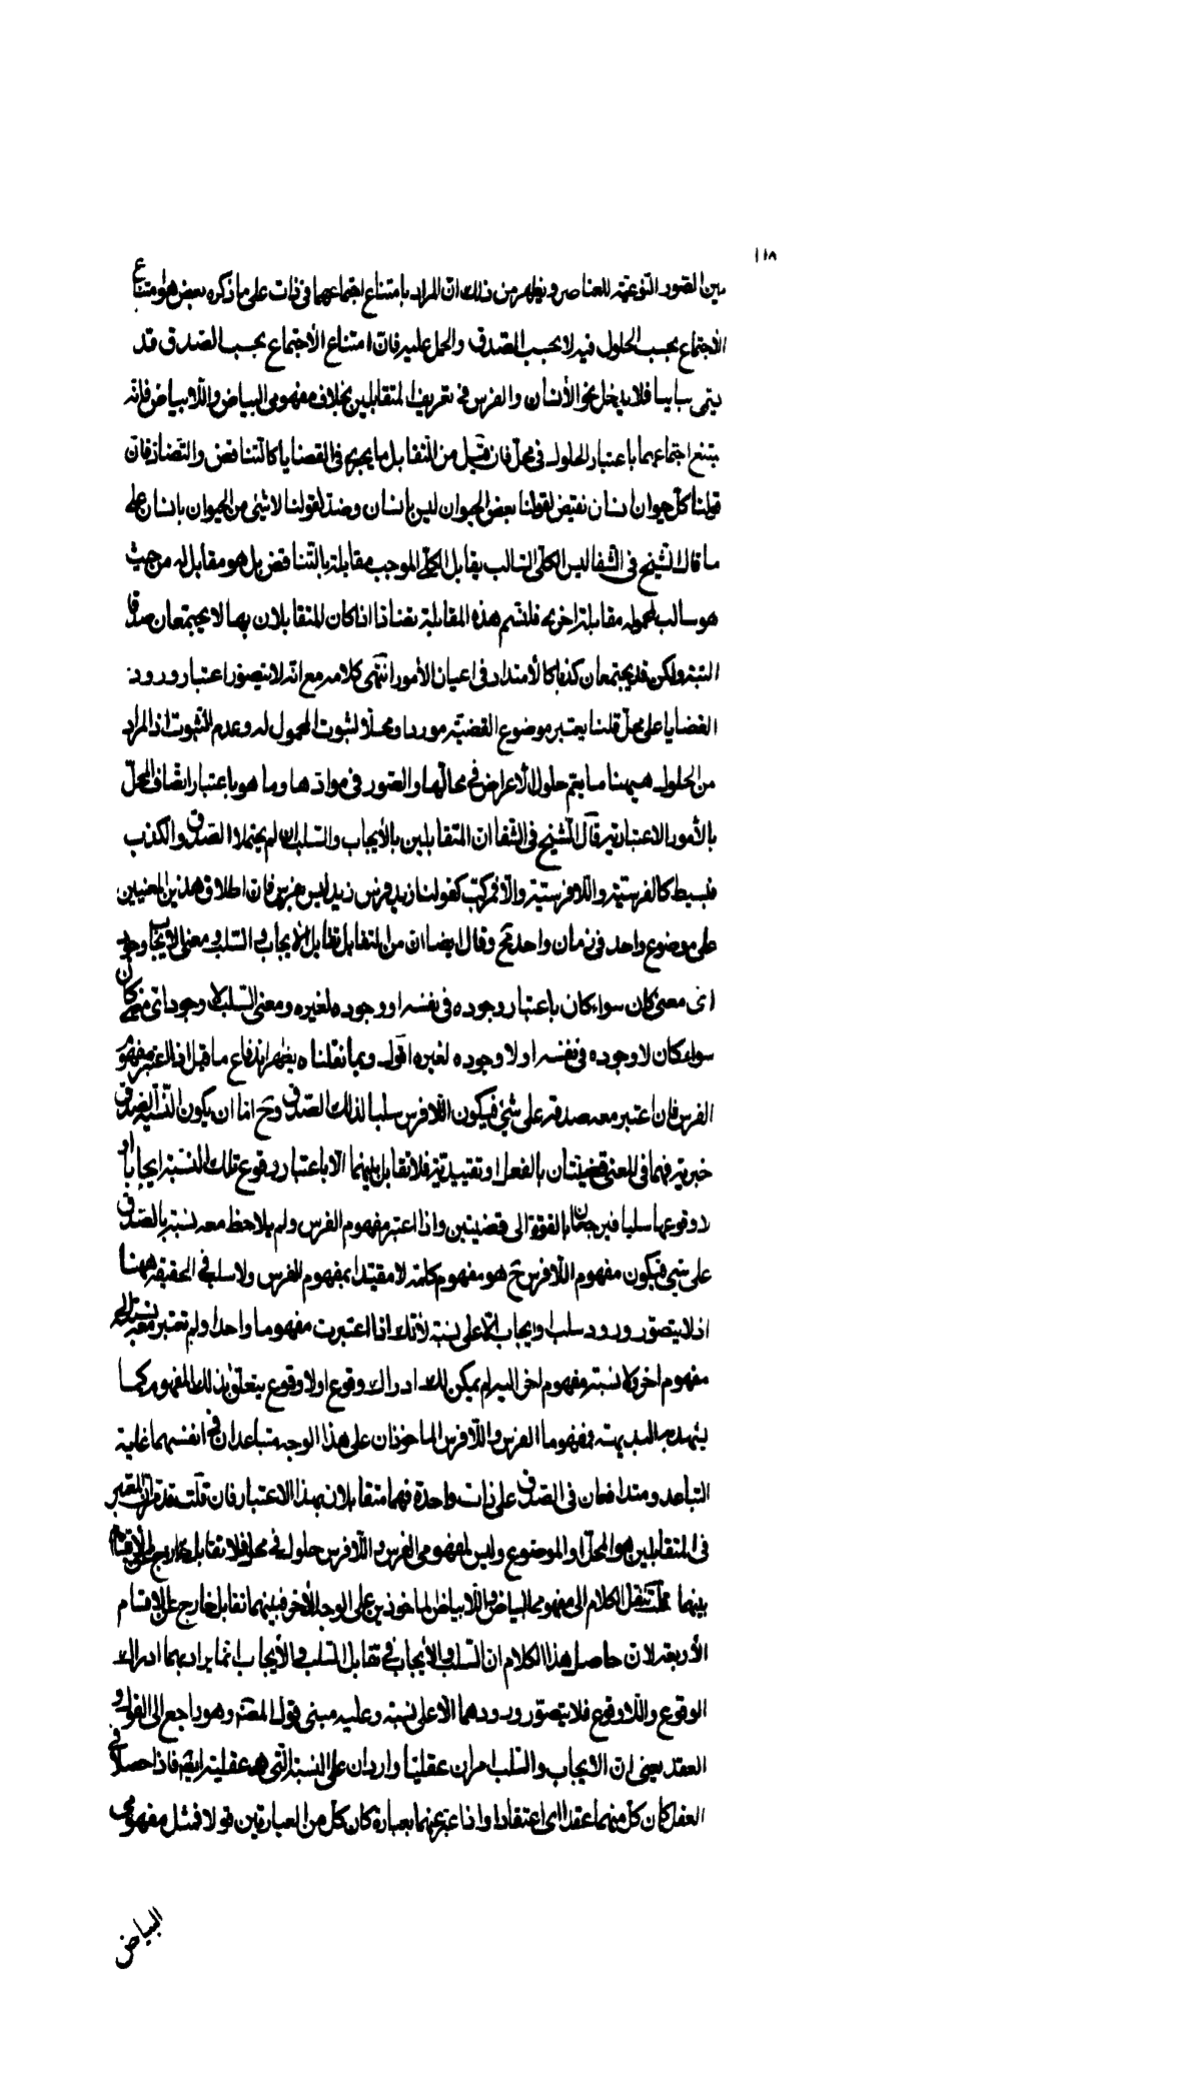 ١١٨
بين الصور النوعية للعناصر ويظهر من ذلك ان المراد بامتناع اجتماعهما في ذات على ما ذكره بعض هو امتناع
الاجتماع بحسب الحلول فيه لا بحسب الصدق والحمل عليه فان امتناع الاجتماع بحسب الصدق قد
يسمى تباينا فلا يدخل نحو الأنسان والفرس في تعريف المتقابلين بخلاف مفهومى البياض واللابياض فانه
يمتنع اجتماعهما باعتبار الحلول في محل فان قيل من التقابل ما يجرى في القضايا كالتناقض والتضاد فان
قولنا كل حيوان انسان نقيض لقولنا بعض الحيوان ليس بانسان وضد لقولنا لا شئ من الحيوان بانسان على
ما قال الشيخ في الشفا ليس الكلى السالب يقابل الكلى الموجب مقابلة بالتناقض بل هو مقابل له من حيث
هو سالب لمحموله مقابلة اخرى فلنسم هذه المقابلة تضادا اذا كان المتقابلان بها لا يجتمعان صدقا
البتة ولكن قد يجتمعان كذبا كالأضداد في اعيان الأمور انتهى كلامه مع انه لا يتصور اعتبار ورود
القضايا على محل قلنا يعتبر موضوع القضية موردا ومحلا لثبوت المحمول له وعدم الثبوت اذ المراد
من الحلول هيهنا ما يعم حلول الأعراض في محالها والصور في موادها وما هو باعتبار اتصاف المحل
بالأمور الاعتبارية قال الشيخ في الشفا ان المتقابلين بالأيجاب والسلب ان لم يحتملا الصدق والكذب
فبسيط كالفرسية واللافرسية والا فمركب كقولنا زيد فرس زيد ليس بفرس فان اطلاق هذين المعنيين
على موضوع واحد في زمان واحد مح وقال ايضا ان من المتقابل تقابل الأيجاب والسلب ومعنى الايجاب وجود
اى معنى كان سواء كان باعتبار وجوده في نفسه او وجوده لغيره ومعنى السلب لا وجود اى معنى كان
سواء كان لا وجوده في نفسه او لا وجوده لغيره اقول وبما نقلناه يظهر اندفاع ما قيل اذا اعتبر مفهوم
الفرس فان اعتبر معه صدقه على شئ فيكون اللافرس سلبا لذلك الصدق وح اما ان يكون النسبة الصدقة
خبرية فهما في المعنى قضيتان بالفعل او تقييدية فلا تقابل بينهما الا باعتبار وقوع تلك النسبة ايجابا و
لا وقوعها سلبا فيرجعان بالقوة الى قضيتين واذا اعتبر مفهوم الفرس ولم يلاحظ معه نسبة بالصدق
على شئ فيكون مفهوم اللافرس ح هو مفهوم كلمة لا مقيدا بمفهوم الفرس ولا سلب في الحقيقة ههنا
اذ لا يتصور ورود سلب او ايجاب الا على نسبة لأنك اذا اعتبرت مفهوما واحدا ولم تعتبر معه نسبة الى
مفهوم اخر ولا نسبة مفهوم اخر اليه لم يمكن لك ادراك وقوع او لا وقوع يتعلق بذلك المفهوم كما
يشهد به البديهة فمفهوما الفرس واللافرس الماخوذان على هذا الوجه متباعدان في انفسهما غاية
التباعد ومتدافعان في الصدق على ذات واحدة فهما متقابلان بهذا الاعتبار فان قلت قد تقرر ان المعتبر
في المتقابلين هو المحل او الموضوع وليس لمفهومى الفرس واللافرس حلول في محل فلا تقابل
بينهما قلت ننقل الكلام الى مفهومى البياض واللابياض الماخوذين على الوجه الأخر فبينهما تقابل خارج عن الاقسام
الأربعة لان حاصل هذا الكلام ان السلب والأيجاب في تقابل السلب والأيجاب انما يراد بهما ادراك
الوقوع واللاوقوع فلا يتصور ورودهما الا على نسبة وعليه مبنى قول المصنف وهو راجع الى القول و
العقد يعنى ان الايجاب والسلب امران عقليان واردان على النسبة التى هى عقلية ايضا فاذا حصلا في
العقل كان كل منهما عقدا اى اعتقادا واذا عبر عنهما بعبارة كان كل من العبارتين قولا فمثل مفهومى
البياض